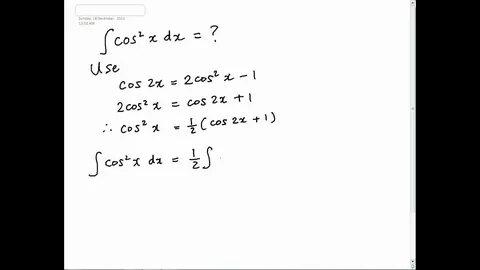 Sunday, 18 December, 2011
∫cos²x dx = ?
Use
cos 2x = 2cos²x − 1
2cos²x = cos 2x + 1
∴ cos²x = 1/2 (cos 2x + 1)
∫cos²x dx = 1/2 ∫